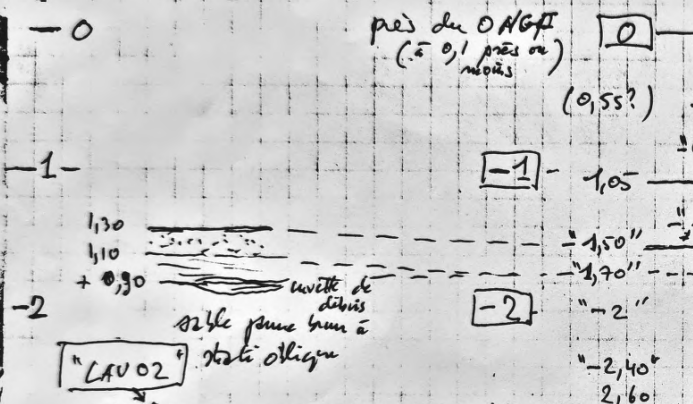 – 0
près du 0 NGF
(à 0,1 près ou
moins)
0
(0,55?)
– 1 –
-1
1,05
1,30
1,10
+ 0,90
"1,50"
"1,70"
cuvette de
débris
-2
-2
"-2"
sable jaune brun à
strati oblique
"CAV 02"
"-2,40"
2,60